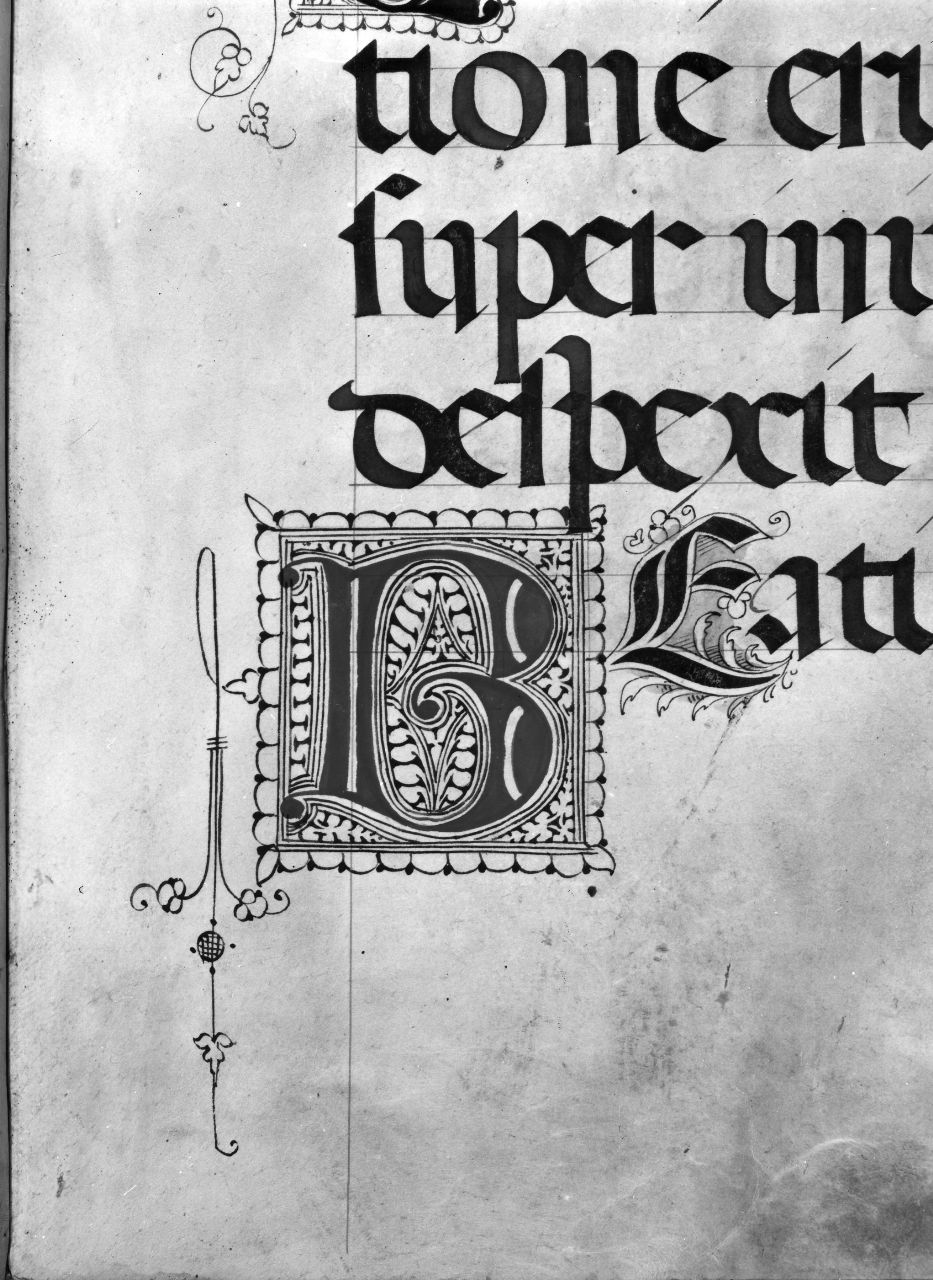 tione cru
super ini
despexit
BEati